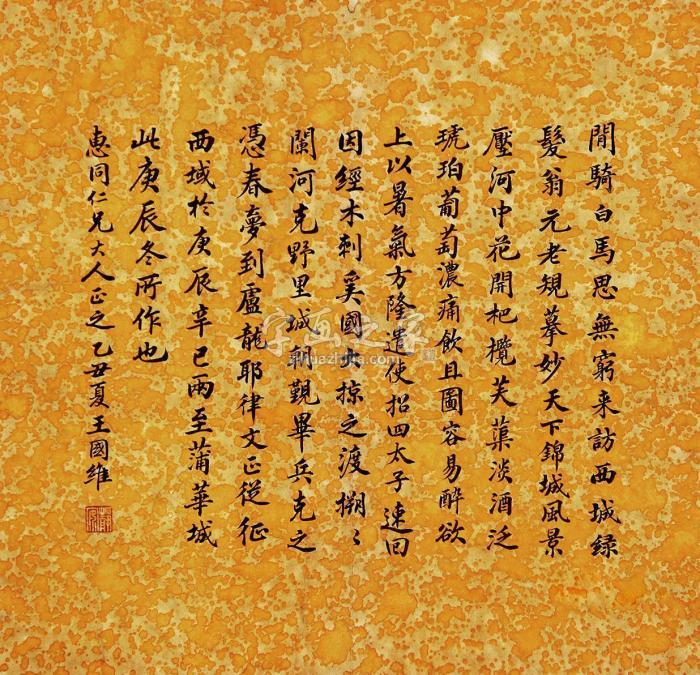 閒騎白馬思無窮来訪西城録
髮翁元老規摹妙天下錦城風景
壓河中花開杷欖芙蕖淡酒泛
琥珀葡萄濃痛飲且圖容易醉欲
上以暑氣方隆遣使招四太子速回
因經木剌奚國大掠之渡搠〻
闌河克野里城朝覲畢兵克之
憑春夢到盧龍耶律文正從征
西域於庚辰辛巳兩至蒲華城
此庚辰冬所作也
惠同仁兄大人正之乙丑夏王國維
字画之家